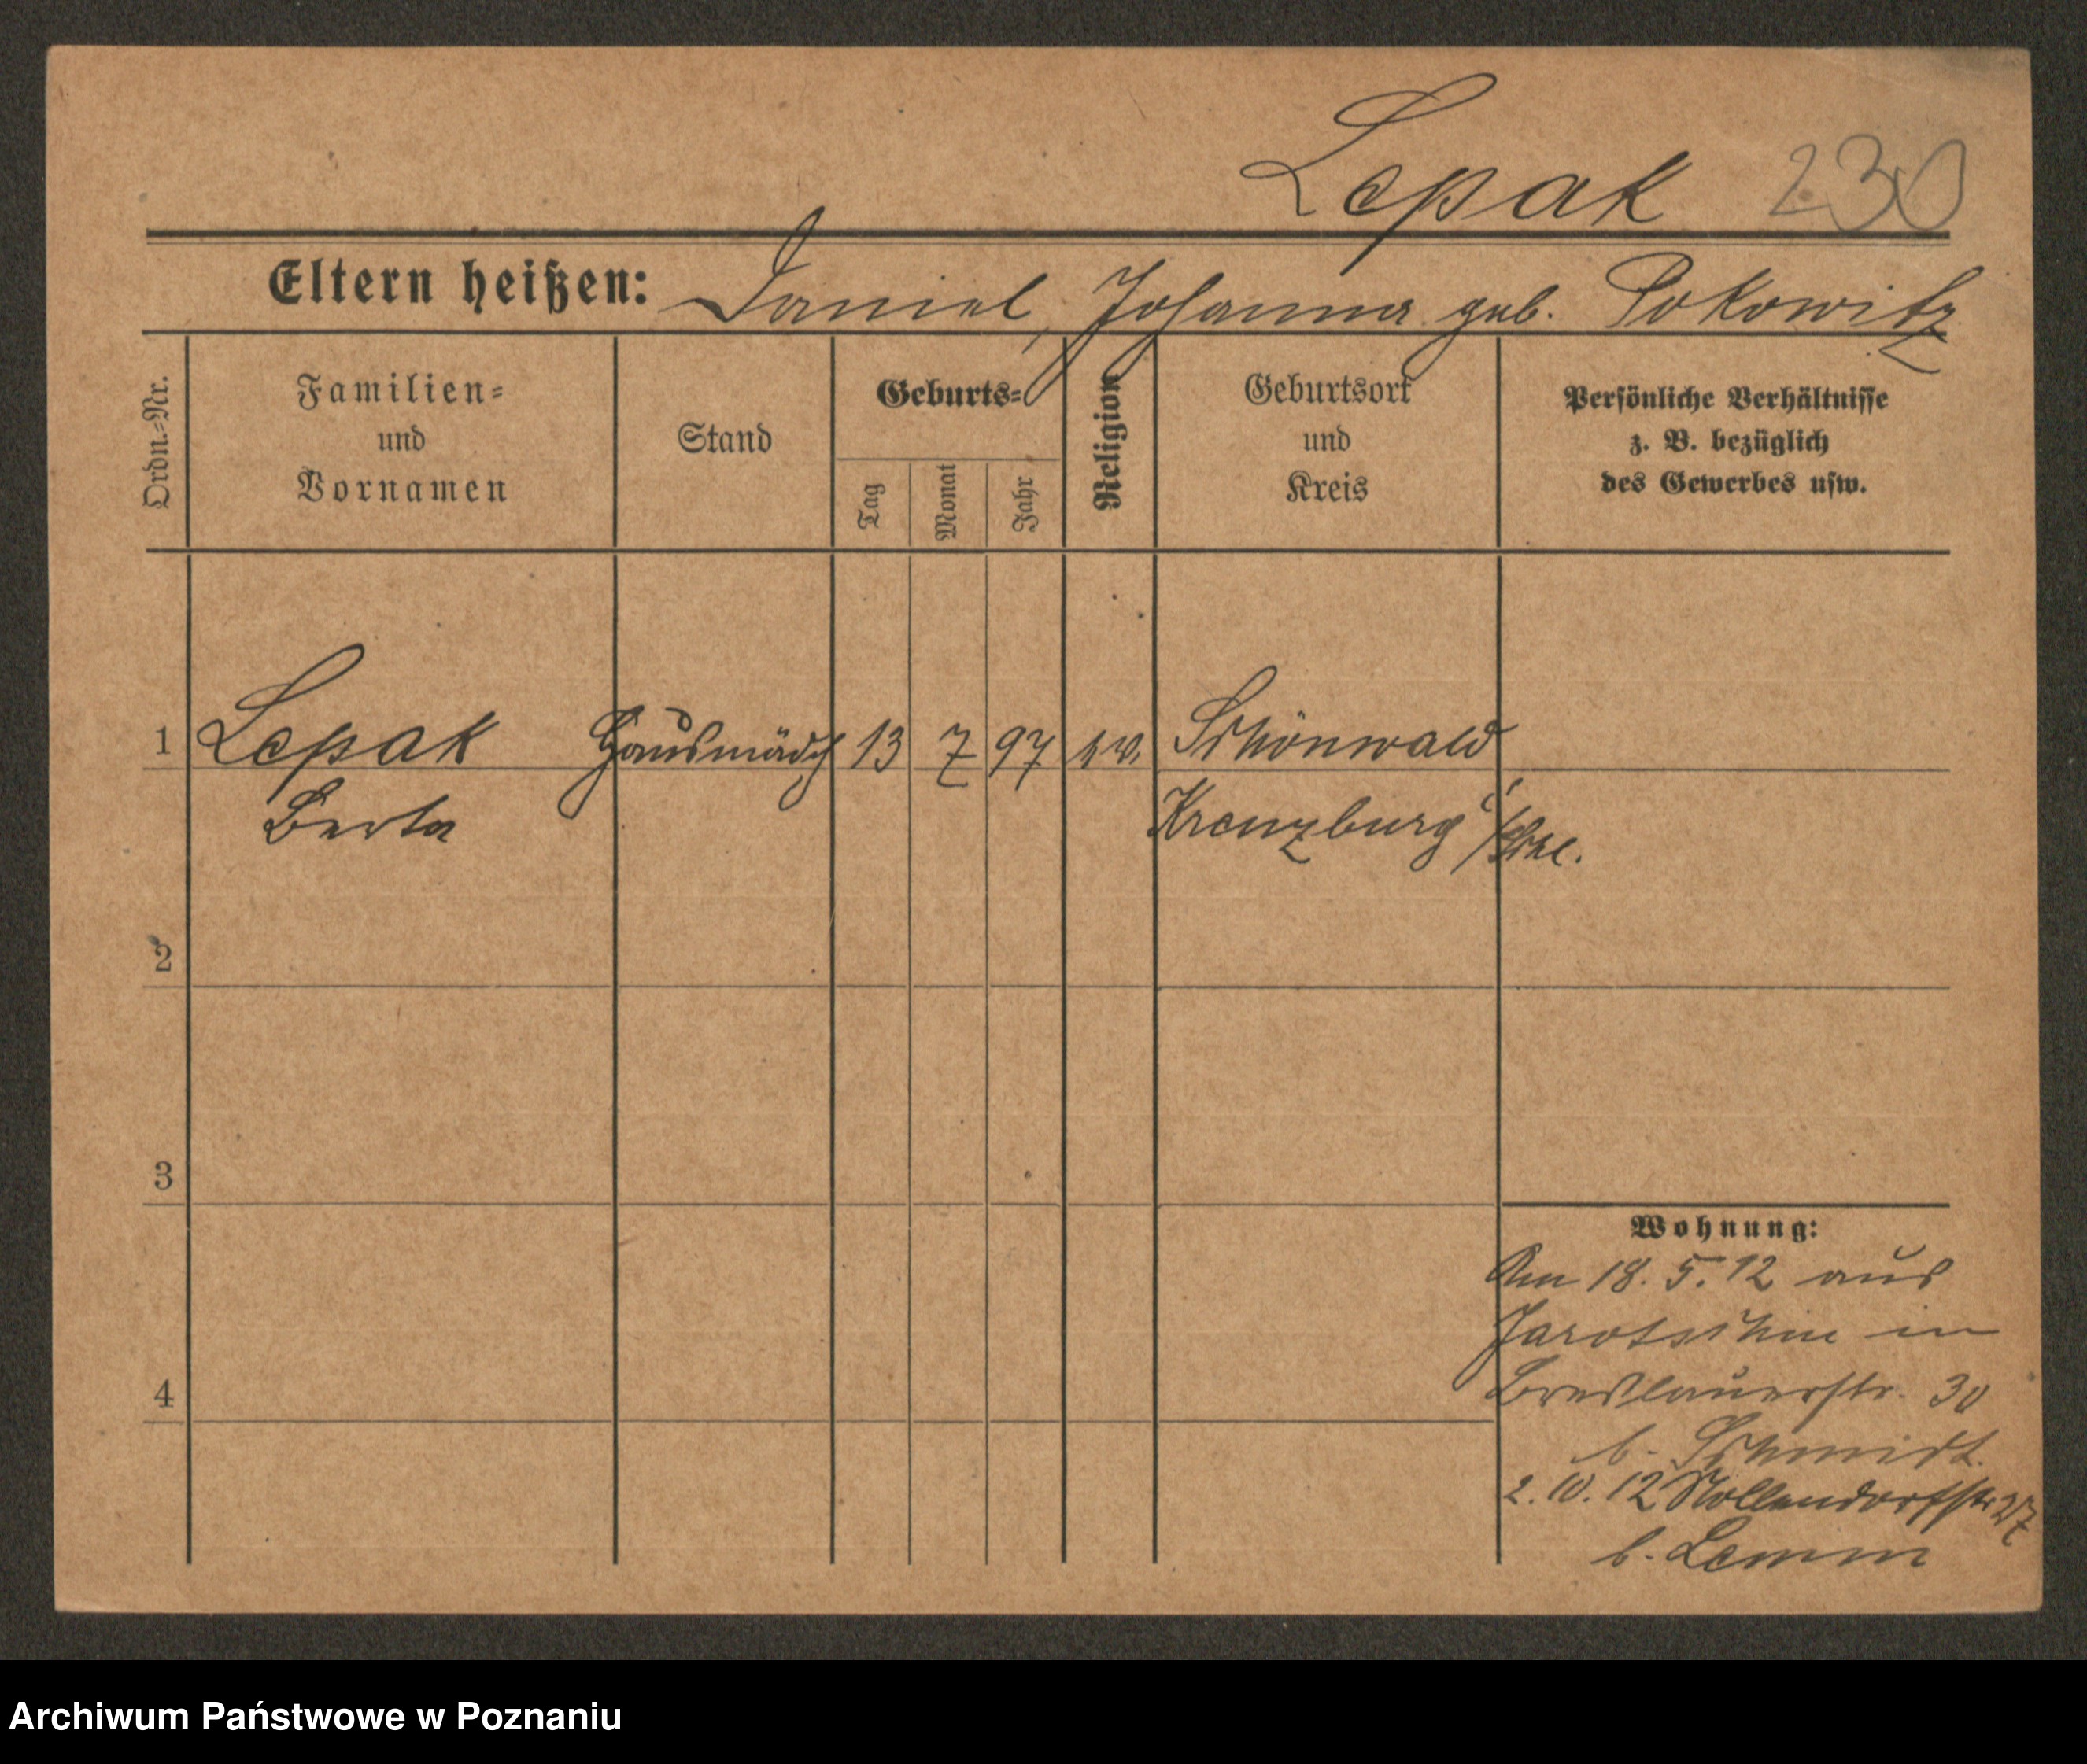 Lepak 230
Eltern heißen: Daniel, Johanna geb. Pokowitz
Ordn.-Nr.
Familien-
und
Vornamen
Stand
Geburts-
Tag
Monat
Jahr
Religion
Geburtsort
und
Kreis
Persönliche Verhältnisse
z. B. bezüglich
des Gewerbes usw.
1 Lepak Hausmädch 13 7 97 ev. Schönwald
Berta Kreuzburg i/Schl.
2
3
Wohnung:
Am 18. 5. 12 aus
Jarotschin in
4 Breslauerstr. 30
b. Schmidt.
2. 10. 12 Nollendorfstr 27
b. Lemm
Archiwum Państwowe w Poznaniu